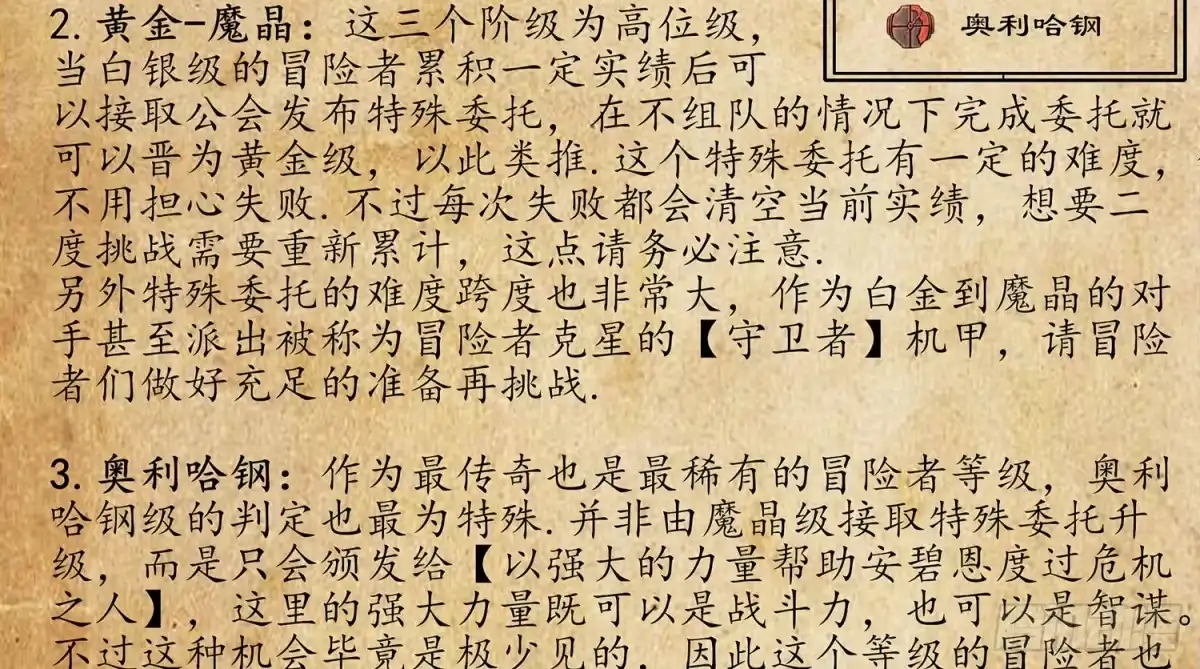 奥利哈钢
2. 黄金-魔晶：这三个阶级为高位级，
当白银级的冒险者累积一定实绩后可
以接取公会发布特殊委托，在不组队的情况下完成委托就
可以晋为黄金级，以此类推.这个特殊委托有一定的难度，
不用担心失败.不过每次失败都会清空当前实绩，想要二
度挑战需要重新累计，这点请务必注意.
另外特殊委托的难度跨度也非常大，作为白金到魔晶的对
手甚至派出被称为冒险者克星的【守卫者】机甲，请冒险
者们做好充足的准备再挑战.
3. 奥利哈钢：作为最传奇也是最稀有的冒险者等级，奥利
哈钢级的判定也最为特殊.并非由魔晶级接取特殊委托升
级，而是只会颁发给【以强大的力量帮助安碧恩度过危机
之人】，这里的强大力量既可以是战斗力，也可以是智谋。
不过这种机会毕竟是极少见的，因此这个等级的冒险者也